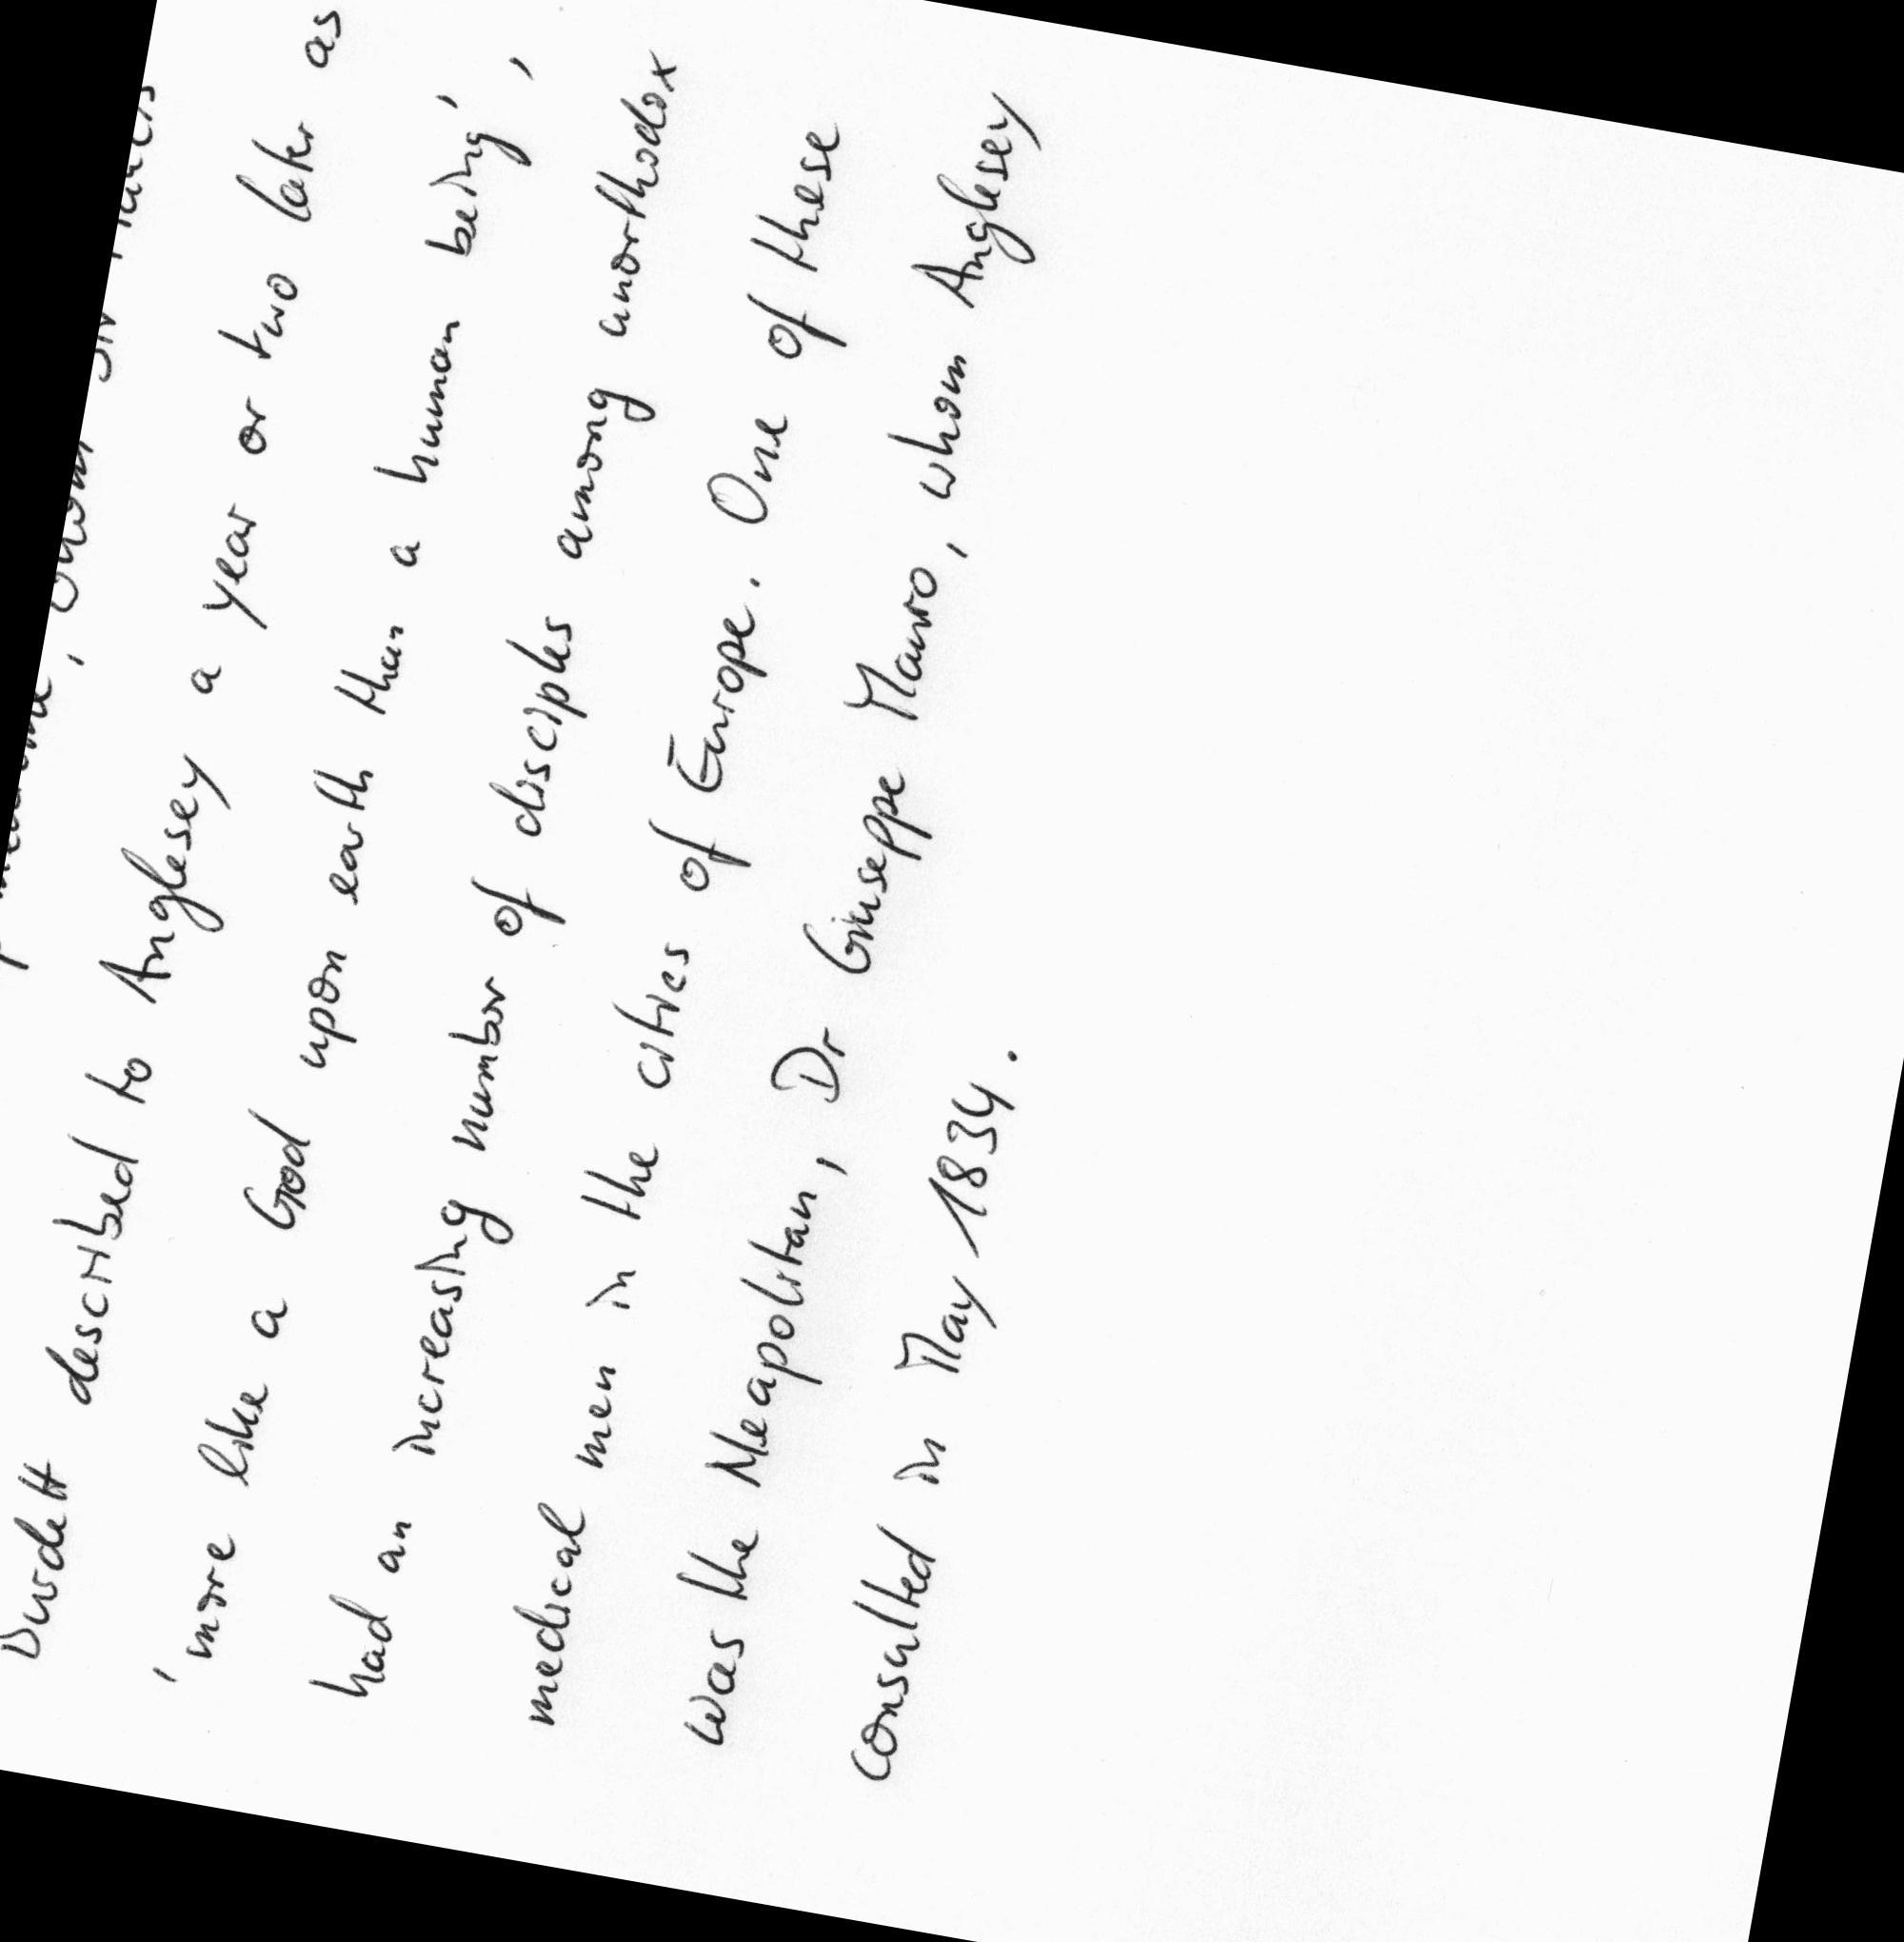 Burdett described to Anglesey a year or two later as
'more like a God upon earth than a human being',
had an increasing number of disciples among unorthodox
medical men in the cities of Europe. One of these
was the Neapolitan, Dr Giuseppe Mauro, whom Anglesey
consulted in May 1834.